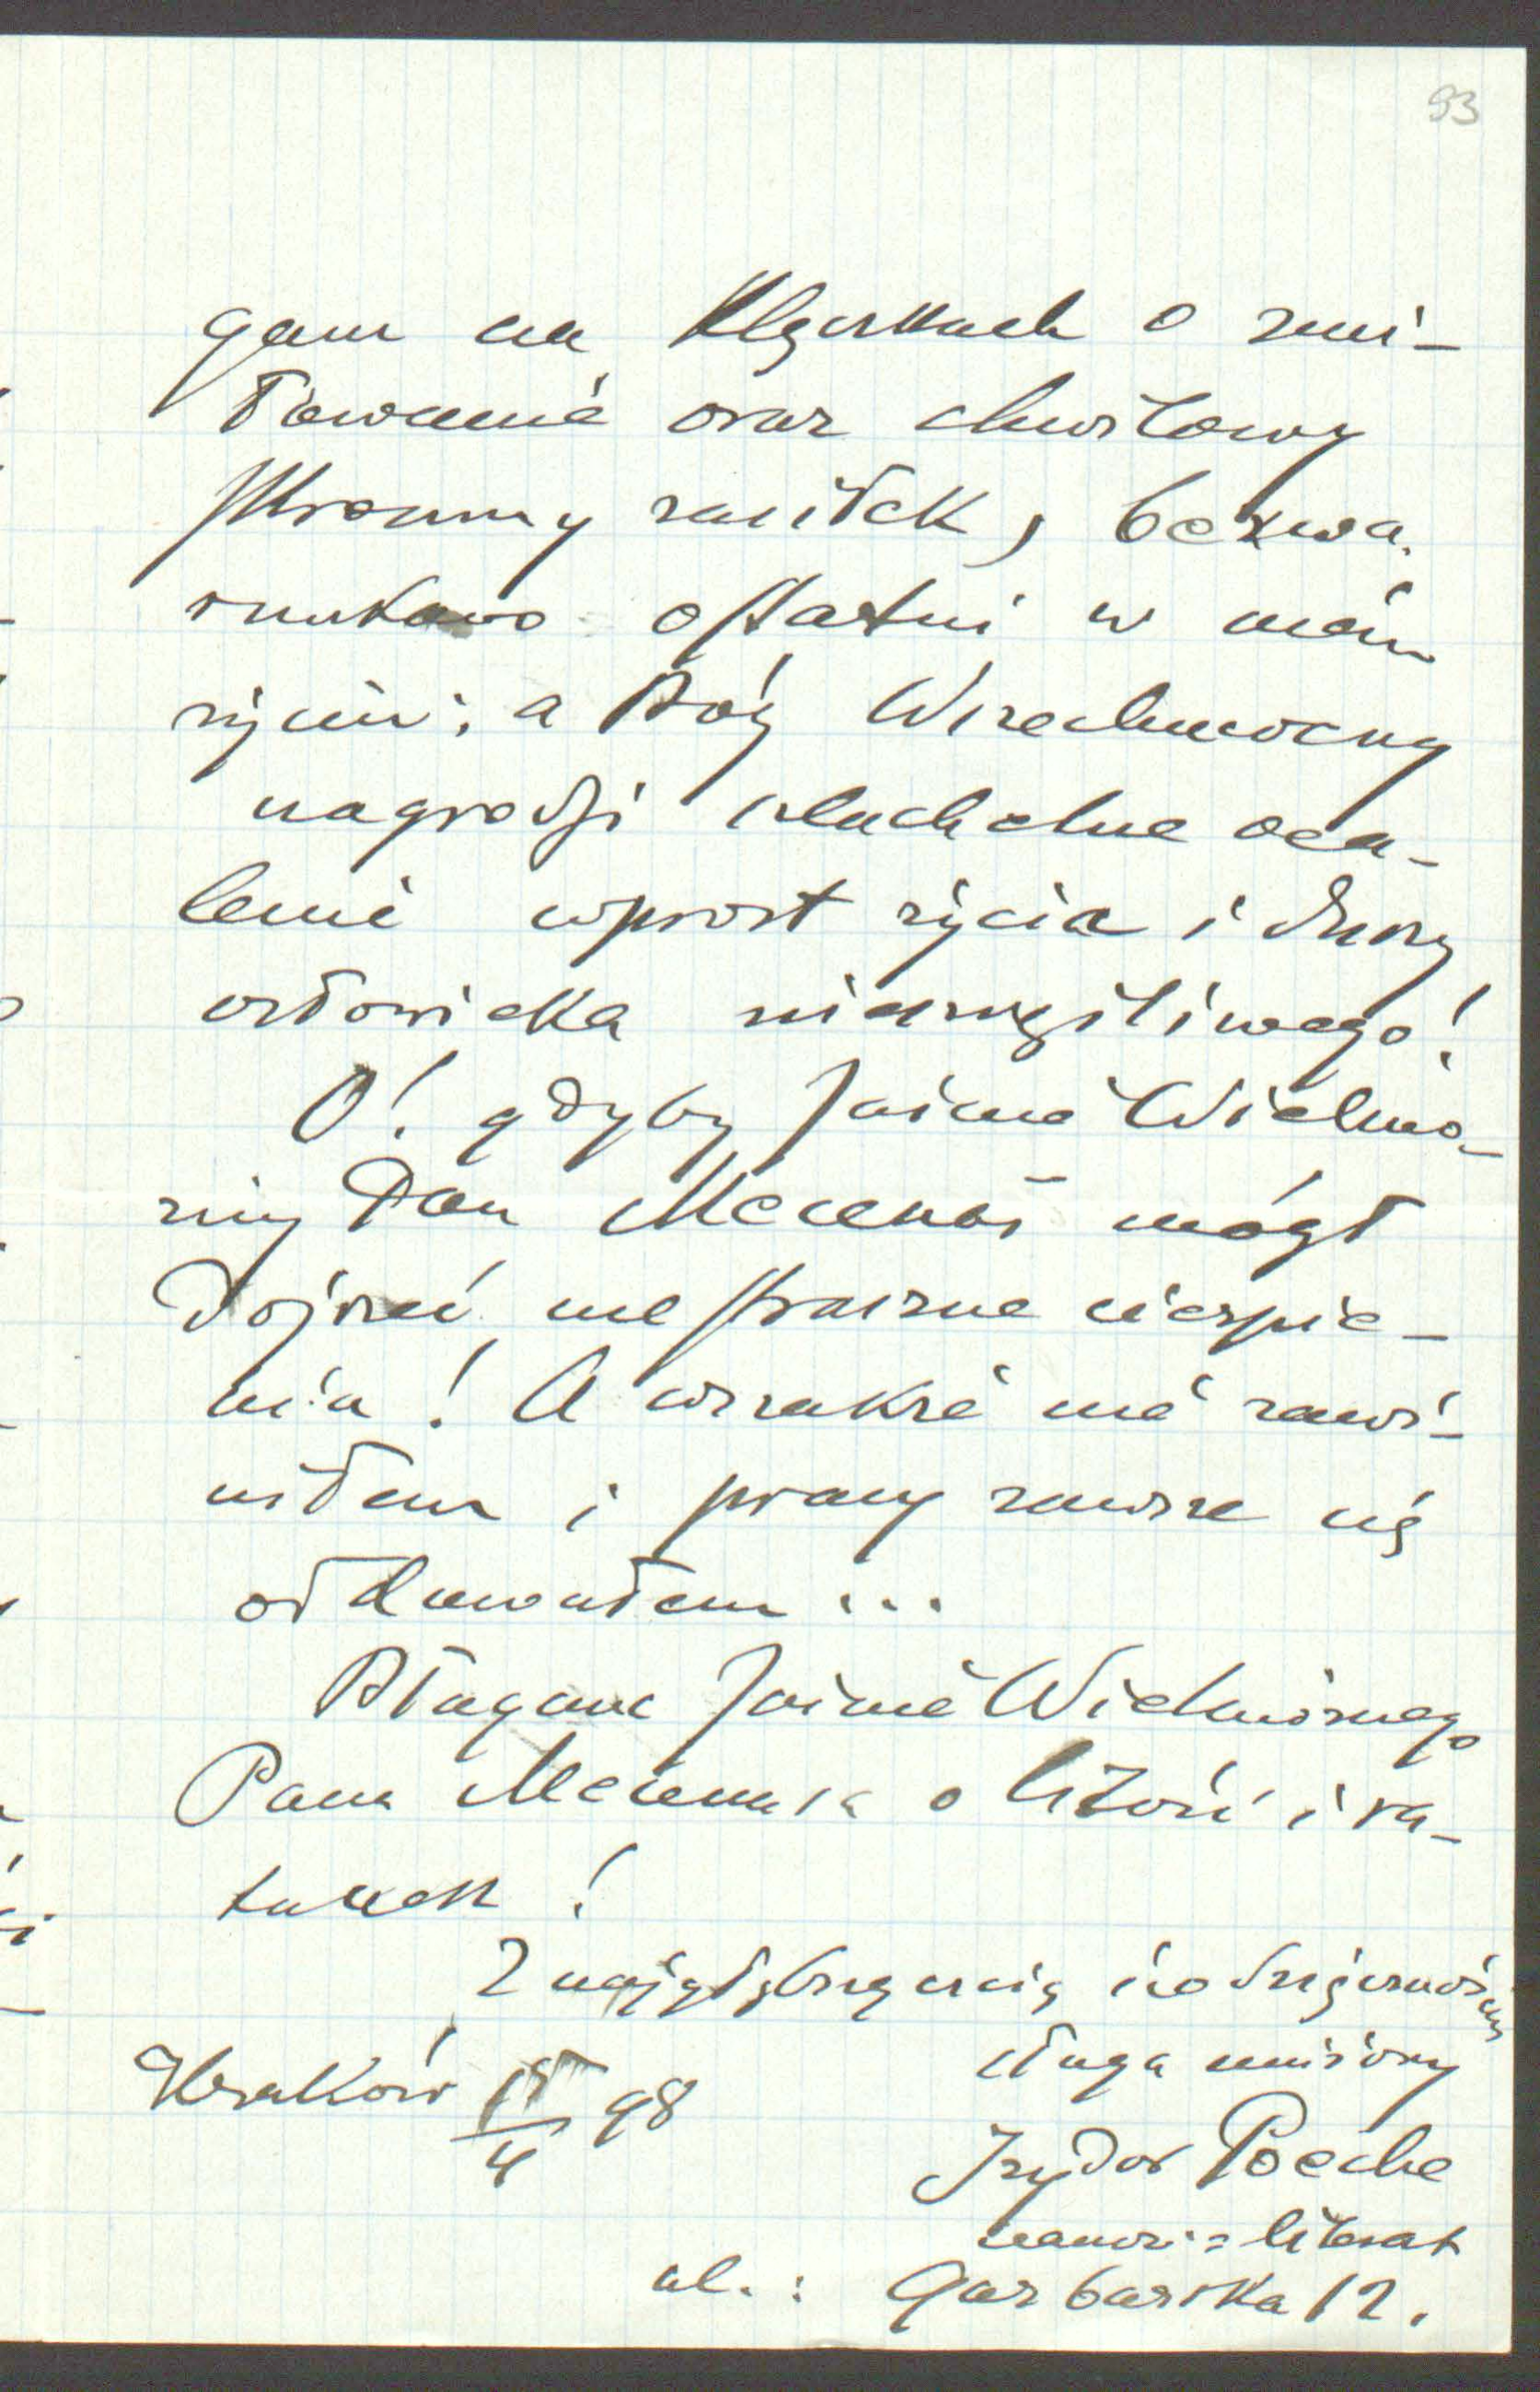 93
gam na klęczkach o zmi-
łowanie oraz chwilowy
skromny zasiłek, bezwa-
runkowo ostatni w mém
życiu; a Bóg Wszechmocny
nagrodzi szlachetne oca-
lenie wprost życia i duszy
człowieka nieszczęśliwego!
O! gdyby Jaśnie Wielmo-
żny Pan Mecenas mógł
dojrzeć me straszne cierpie-
nia! A wszakże nie zawi-
niłem i pracy zawsze się
oddawałem...
Błagam Jaśnie Wielmożnego
Pana Mecenasa o litość i ra-
tunek!
Z najgłębszą czcią i
sługa uniżony
Kraków 15/4 98
Izydor Poeche
literat
ul.: Garbarska 12.